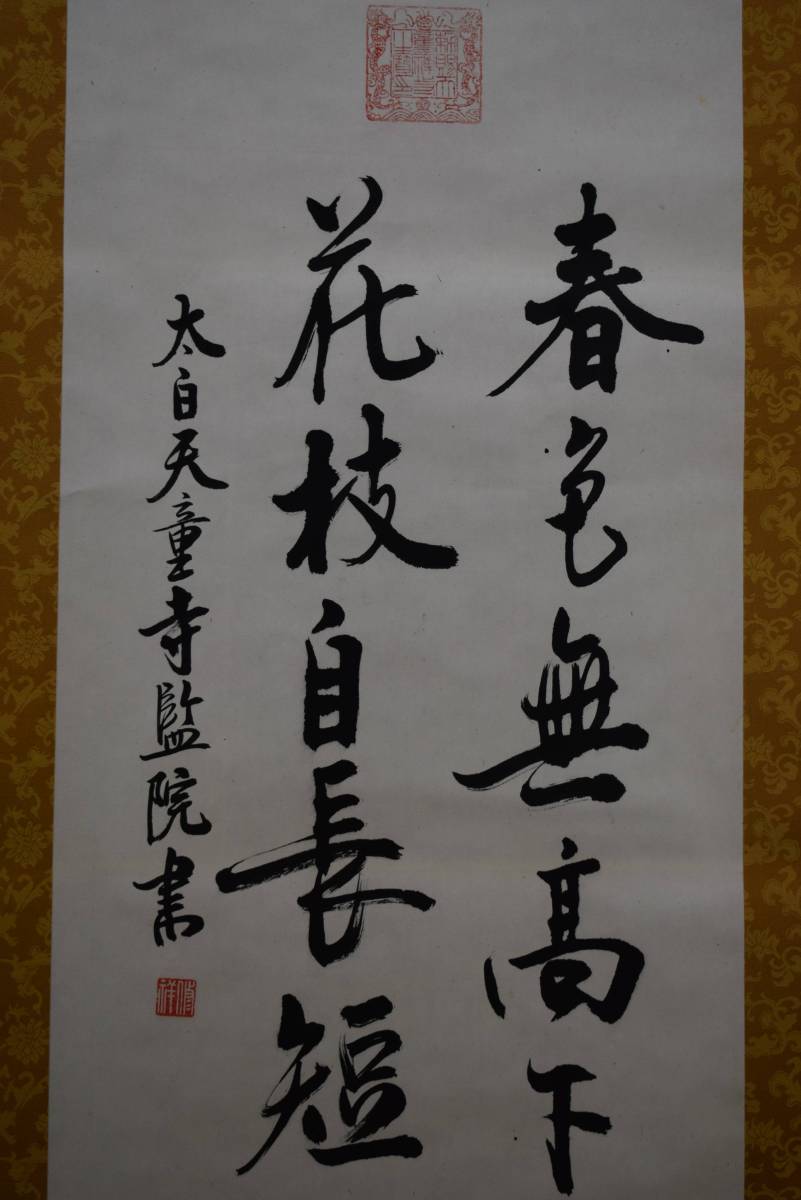 春色無高下
花枝自長短
太白天童寺監院書
修祥